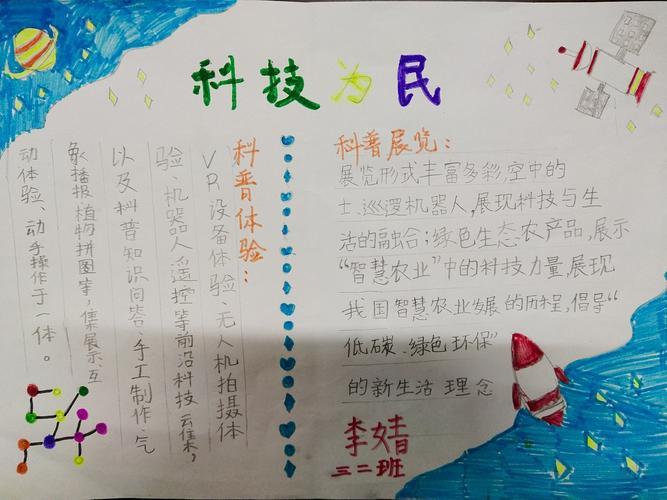 科技为民
科普体验：
VR设备体验、无人机拍摄体
验、机器人遥控等前沿科技云集，
以及科普知识问答、手工制作、气
象播报植物拼图等，集展示、互
动体验、动手操作于一体。
科普展览：
展览形式丰富多彩，空中的
士、巡逻机器人，展现科技与生
活的融合；绿色生态农产品，展示
“智慧农业”中的科技力量，展现
我国智慧农业发展的历程，倡导“
低碳、绿色环保”
的新生活理念
李婧
三二班